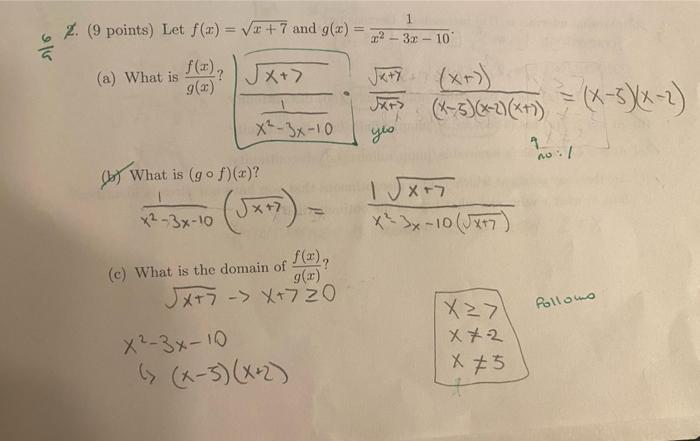 6/9
2. (9 points) Let f(x) = √(x + 7) and g(x) = 1/(x² − 3x − 10).
(a) What is f(x)/g(x)?
√(x+7) / (1/(x²-3x-10)) · √(x+7)/√(x+7) (x+7)/((x-5)(x-2)(x+7)) = (x-5)(x-2)
yes
↑ no :/
(b) What is (g ∘ f)(x)?
1/(x²-3x-10) (√(x+7)) = 1√(x+7) / (x²-3x-10(√(x+7)))
(c) What is the domain of f(x)/g(x)?
√(x+7) -> x+7 ≥ 0
x²-3x-10
↳ (x-5)(x+2)
x ≥ 7
x ≠ 2
x ≠ 5
follows